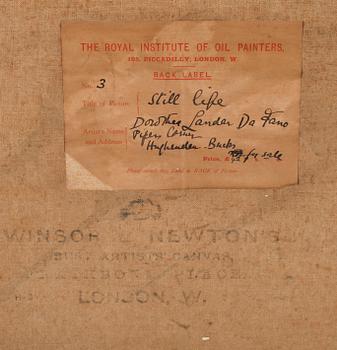 THE ROYAL INSTITUTE OF OIL PAINTERS,
195, PICCADILLY, LONDON, W.
BACK LABEL.
No. 3
Title of Picture Still life
Dorothea Landau Da Fano
Artist's Name Pipers Corner
and Address Hughenden Bucks
Price, £ not for sale
Please attach this Label to BACK of Picture.
WINSOR & NEWTON'S
ARTISTS CANVAS,
RATHBONE PLACE
LONDON, W.